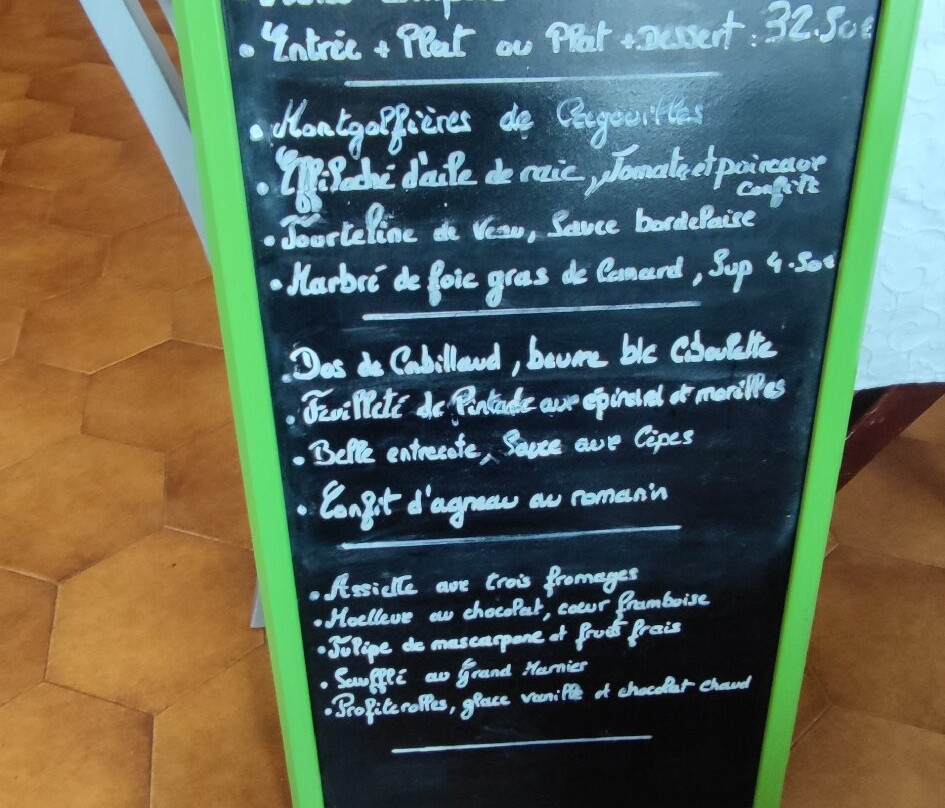 • Entrée + Plat ou Plat + Dessert : 32.50€
• Montgolfières de Cagouilles
• Effiloché d'aile de raie, Tomate et poireaux
confits
• Tourteline de Veau, Sauce bordelaise
• Marbré de foie gras de Canard, Sup 4.50€
• Dos de Cabillaud, beurre blc Ciboulette
• Feuilleté de Pintade aux épinard et morilles
• Belle entrecote, Sauce aux Cèpes
• Confit d'agneau au romarin
• Assiette aux trois fromages
• Moelleux au chocolat, cœur framboise
• Tulipe de mascarpone et fruits frais
• Soufflé au Grand Marnier
• Profiterolles, glace vanille et chocolat chaud